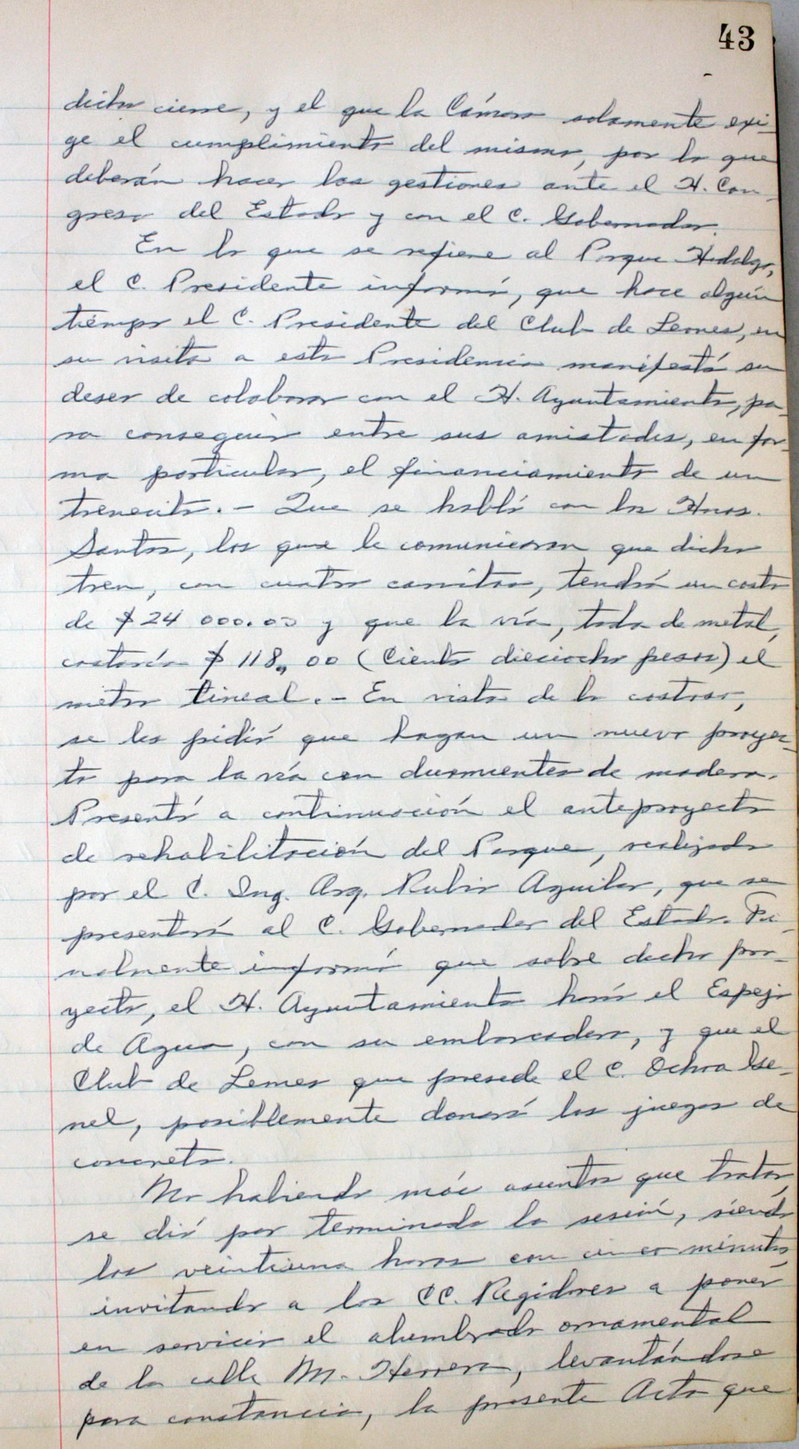 43
dicho cierre, y el que la Cámara solamente exi-
ge el cumplimiento del mismo, por lo que
deberán hacer las gestiones ante el H. Con-
greso del Estado y con el C. Gobernador.
En lo que se refiere al Parque Hidalgo,
el C. Presidente informó, que hace algún
tiempo el C. Presidente del Club de Leones, en
su visita a esta Presidencia manifestó su
deseo de colaborar con el H. Ayuntamiento, pa-
ra conseguir entre sus amistades, en for-
ma particular, el financiamiento de un
trenecito.- Que se habló con los Hnos.
Santos, los que le comunicaron que dicho
tren, con cuatro carritos, tendrá un costo
de $24 000.00 y que la vía, toda de metal,
costaría $118,,00 (Ciento dieciocho pesos) el
metro lineal.- En vista de lo costoso,
se les pidió que hagan un nuevo proyec-
to para la vía con durmientes de madera.
Presentó a continuación el anteproyecto
de rehabilitación del Parque, realizado
por el C. Ing. Arq. Rubio Aguilar, que se
presentará al C. Gobernador del Estado. Fi-
nalmente informó que sobre dicho pro-
yecto, el H. Ayuntamiento hará el Espejo
de Agua, con su embarcadero, y que el
Club de Leones que preside el C. Ochoa
nel, posiblemente donará los juegos de
concreto.
No habiendo más asuntos que tratar,
se dió por terminada la sesión, siendo
las veintiuna horas con cinco minutos,
invitando a los CC. Regidores a poner
en servicio el alumbrado ornamental
de la calle M. Herrera, levantándose
para constancia, la presente Acta que